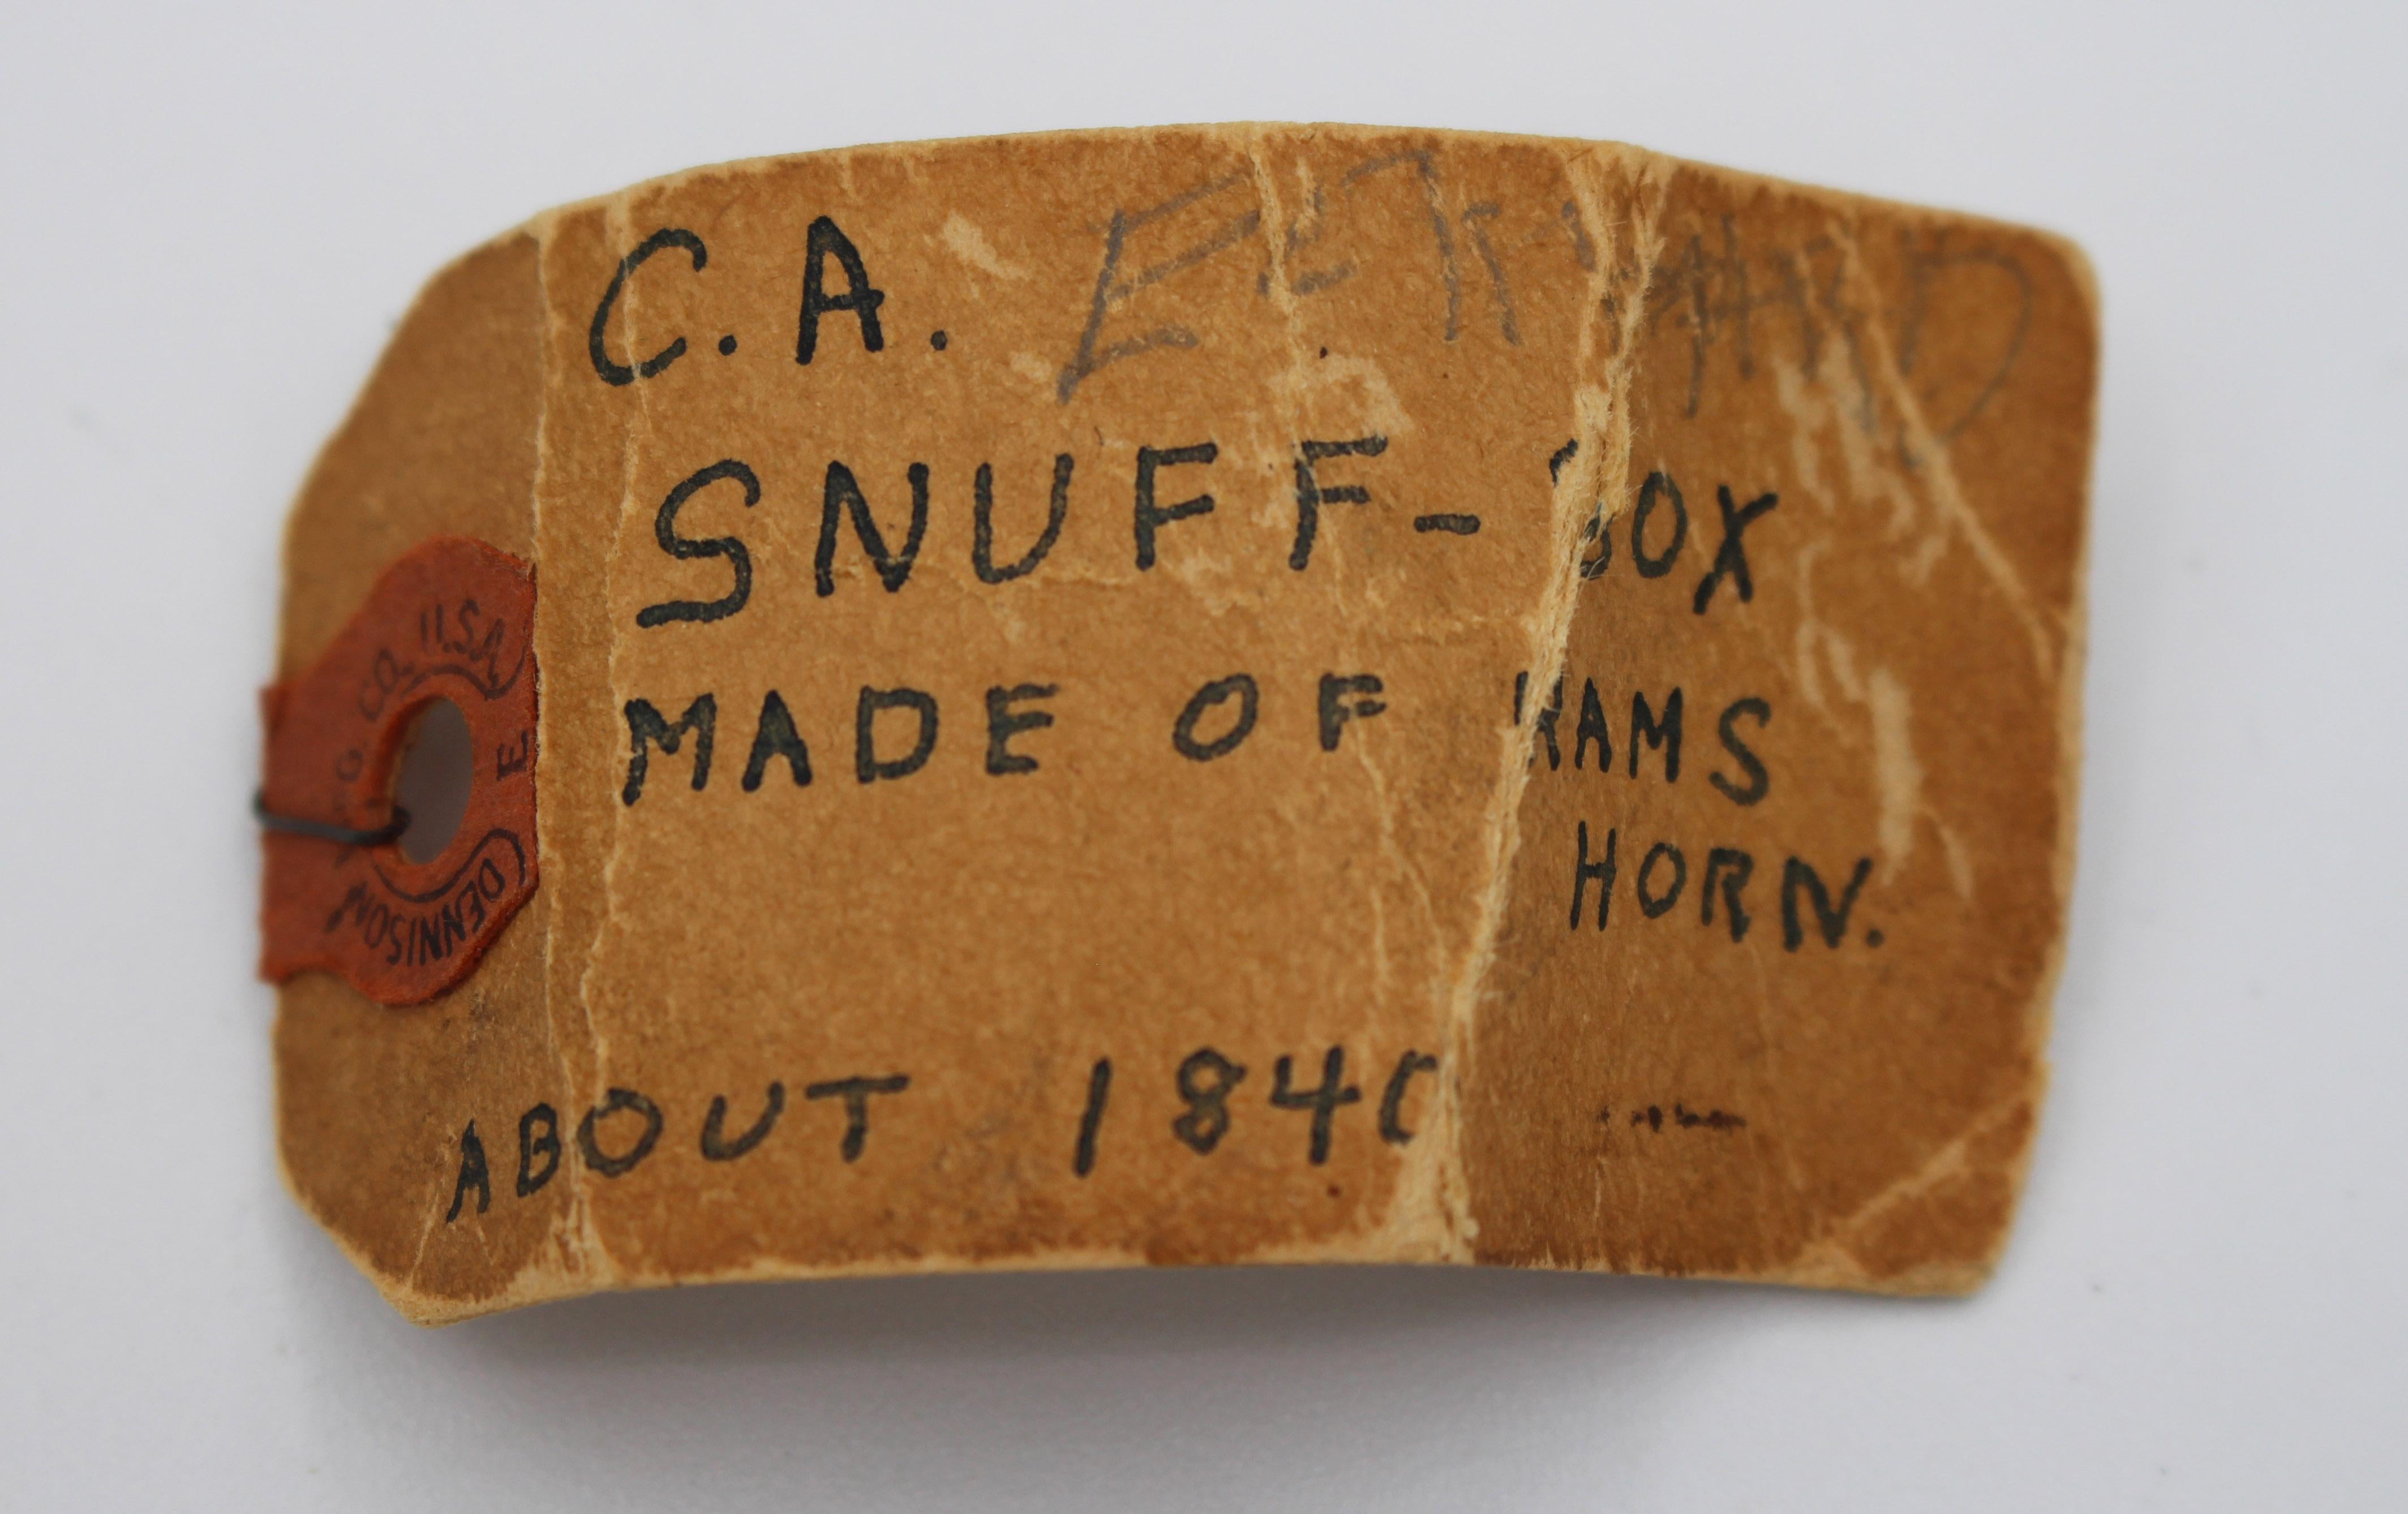 C.A.
SNUFF-BOX
MADE OF RAMS
HORN.
ABOUT 1840
DENNISON MFG CO. U.S.A.
E